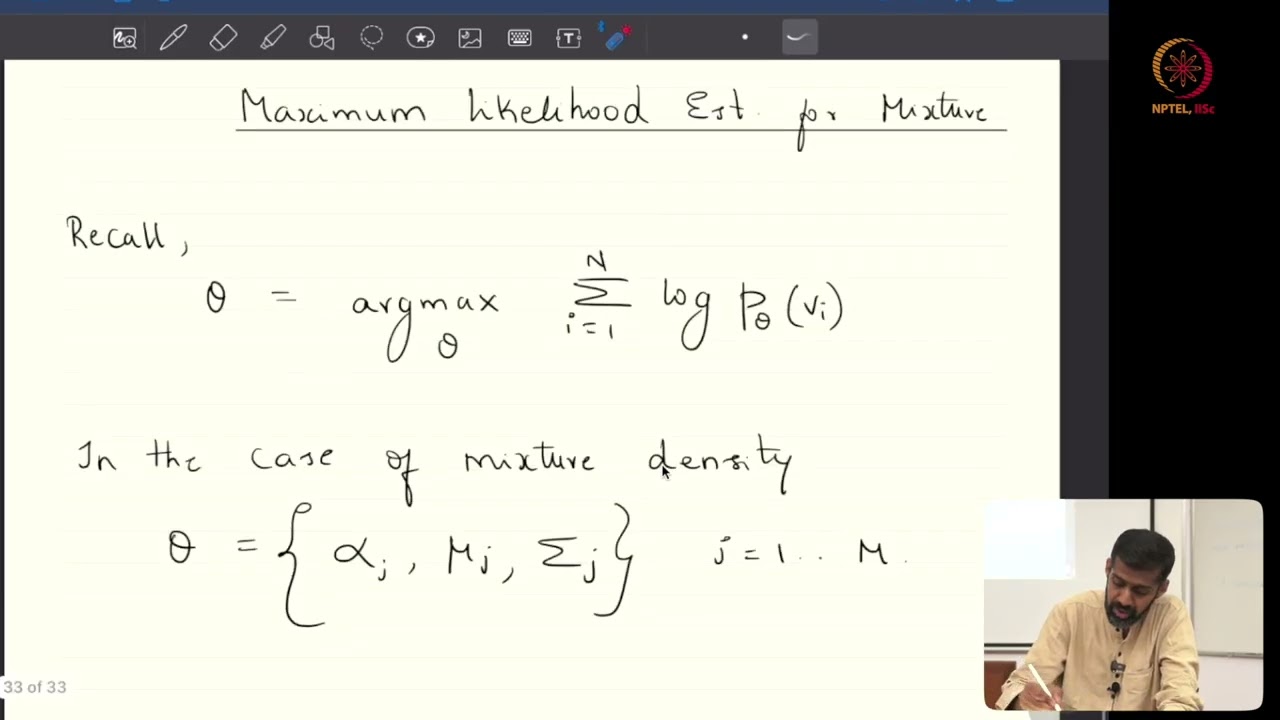 Maximum Likelihood Est. for Mixture
NPTEL, IISc
Recall,
θ = argmax_θ ∑_{i=1}^{N} log p_θ (v_i)
In the case of mixture density
θ = { α_j, μ_j, Σ_j } j = 1 .. M.
33 of 33